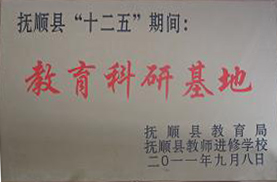 抚顺县“十二五”期间:
教育科研基地
抚顺县教育局
抚顺县教师进修学校
二0一一年九月八日